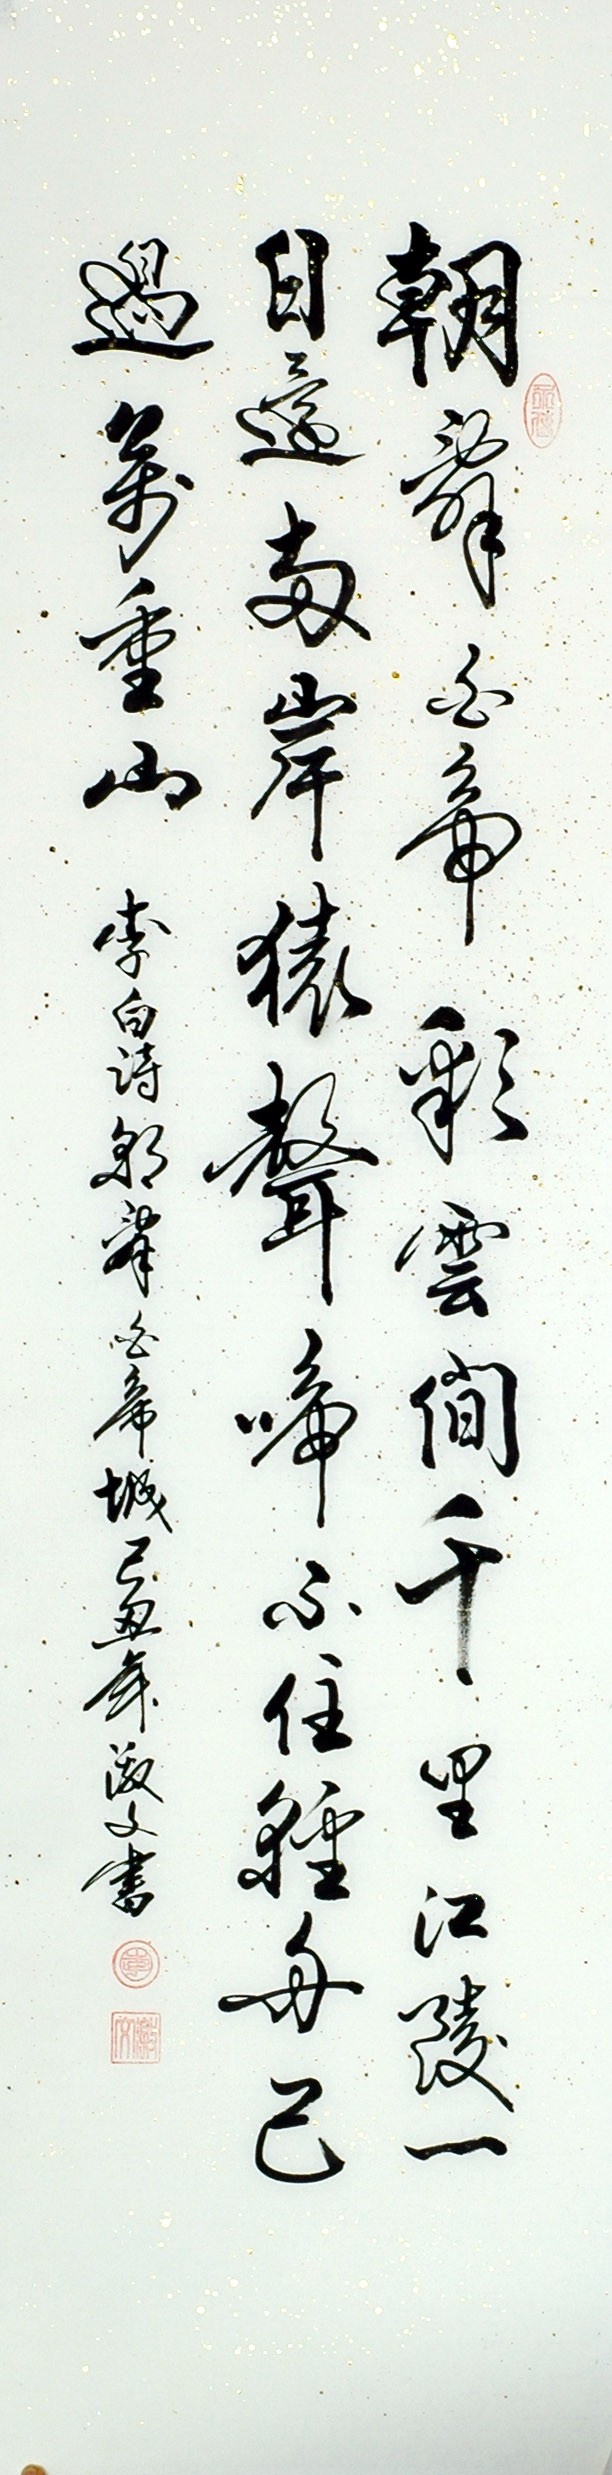 朝辭白帝彩雲間千里江陵一
日還兩岸猿聲啼不住輕舟已
過萬重山 李白詩朝辭白帝城己丑年澂文書